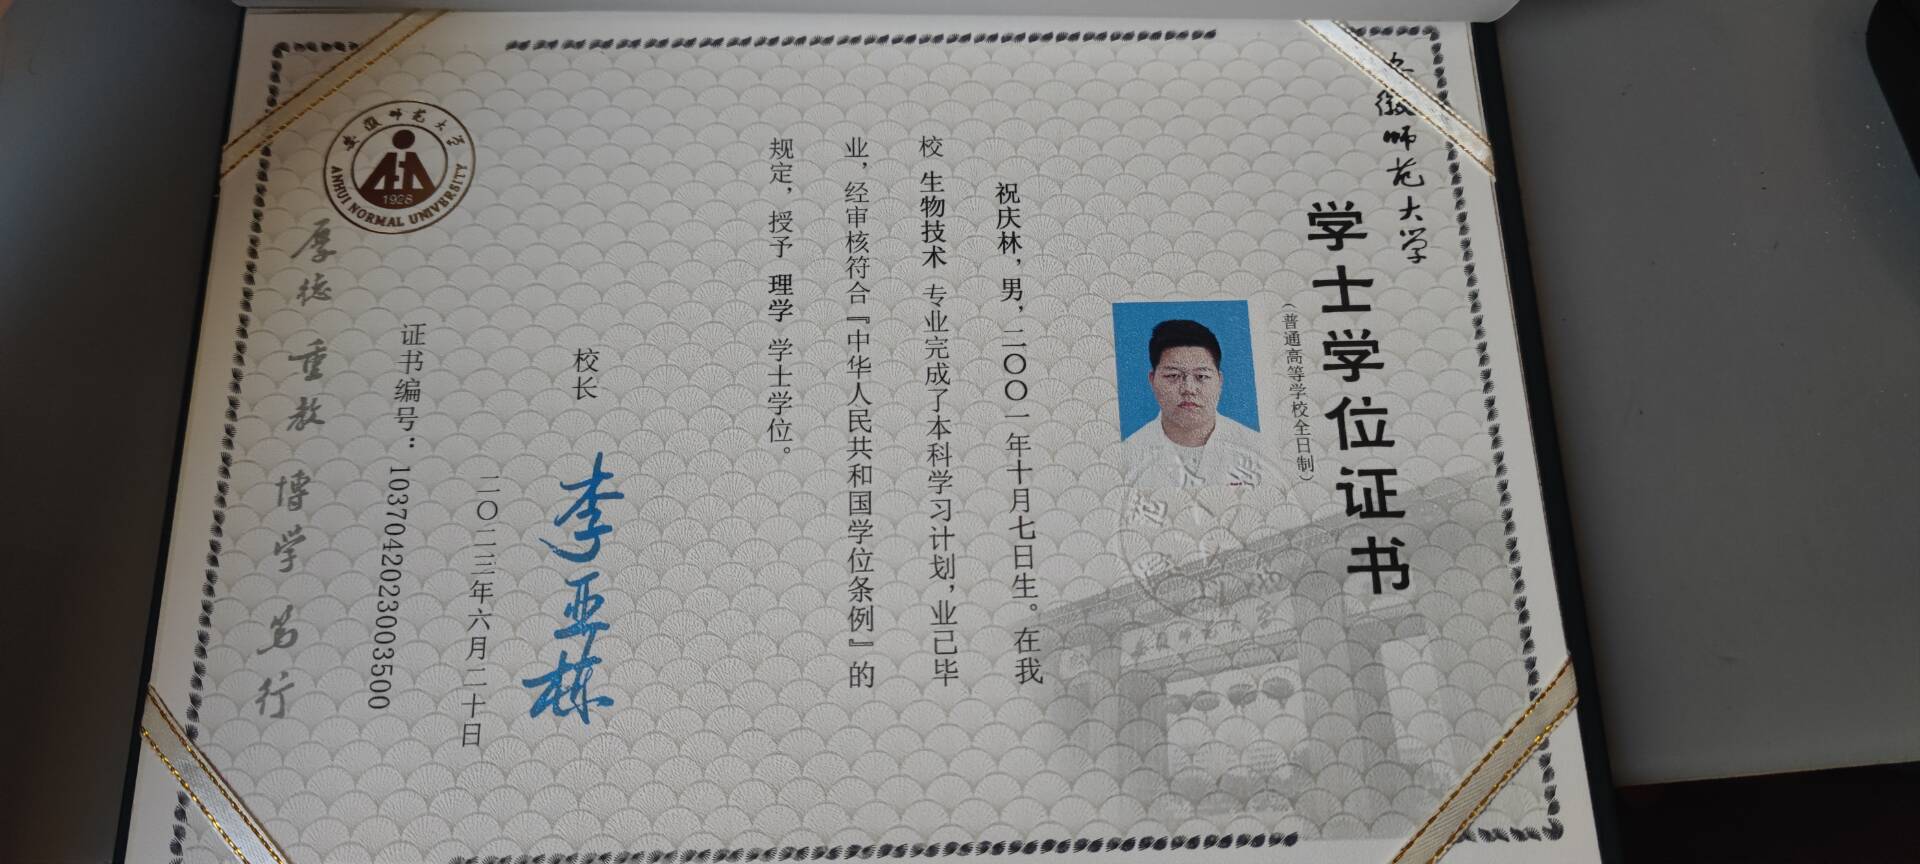 安徽师范大学
学士学位证书
（普通高等学校全日制）
祝庆林，男，二〇〇一年十月七日生。在我
校 生物技术 专业完成了本科学习计划，业已毕
业，经审核符合『中华人民共和国学位条例』的
规定，授予 理学 学士学位。
校长
李亚栋
二〇二三年六月二十日
证书编号：1037042023003500
安徽师范大学
1928
ANHUI NORMAL UNIVERSITY
厚德 重教 博学 笃行
安徽师范大学